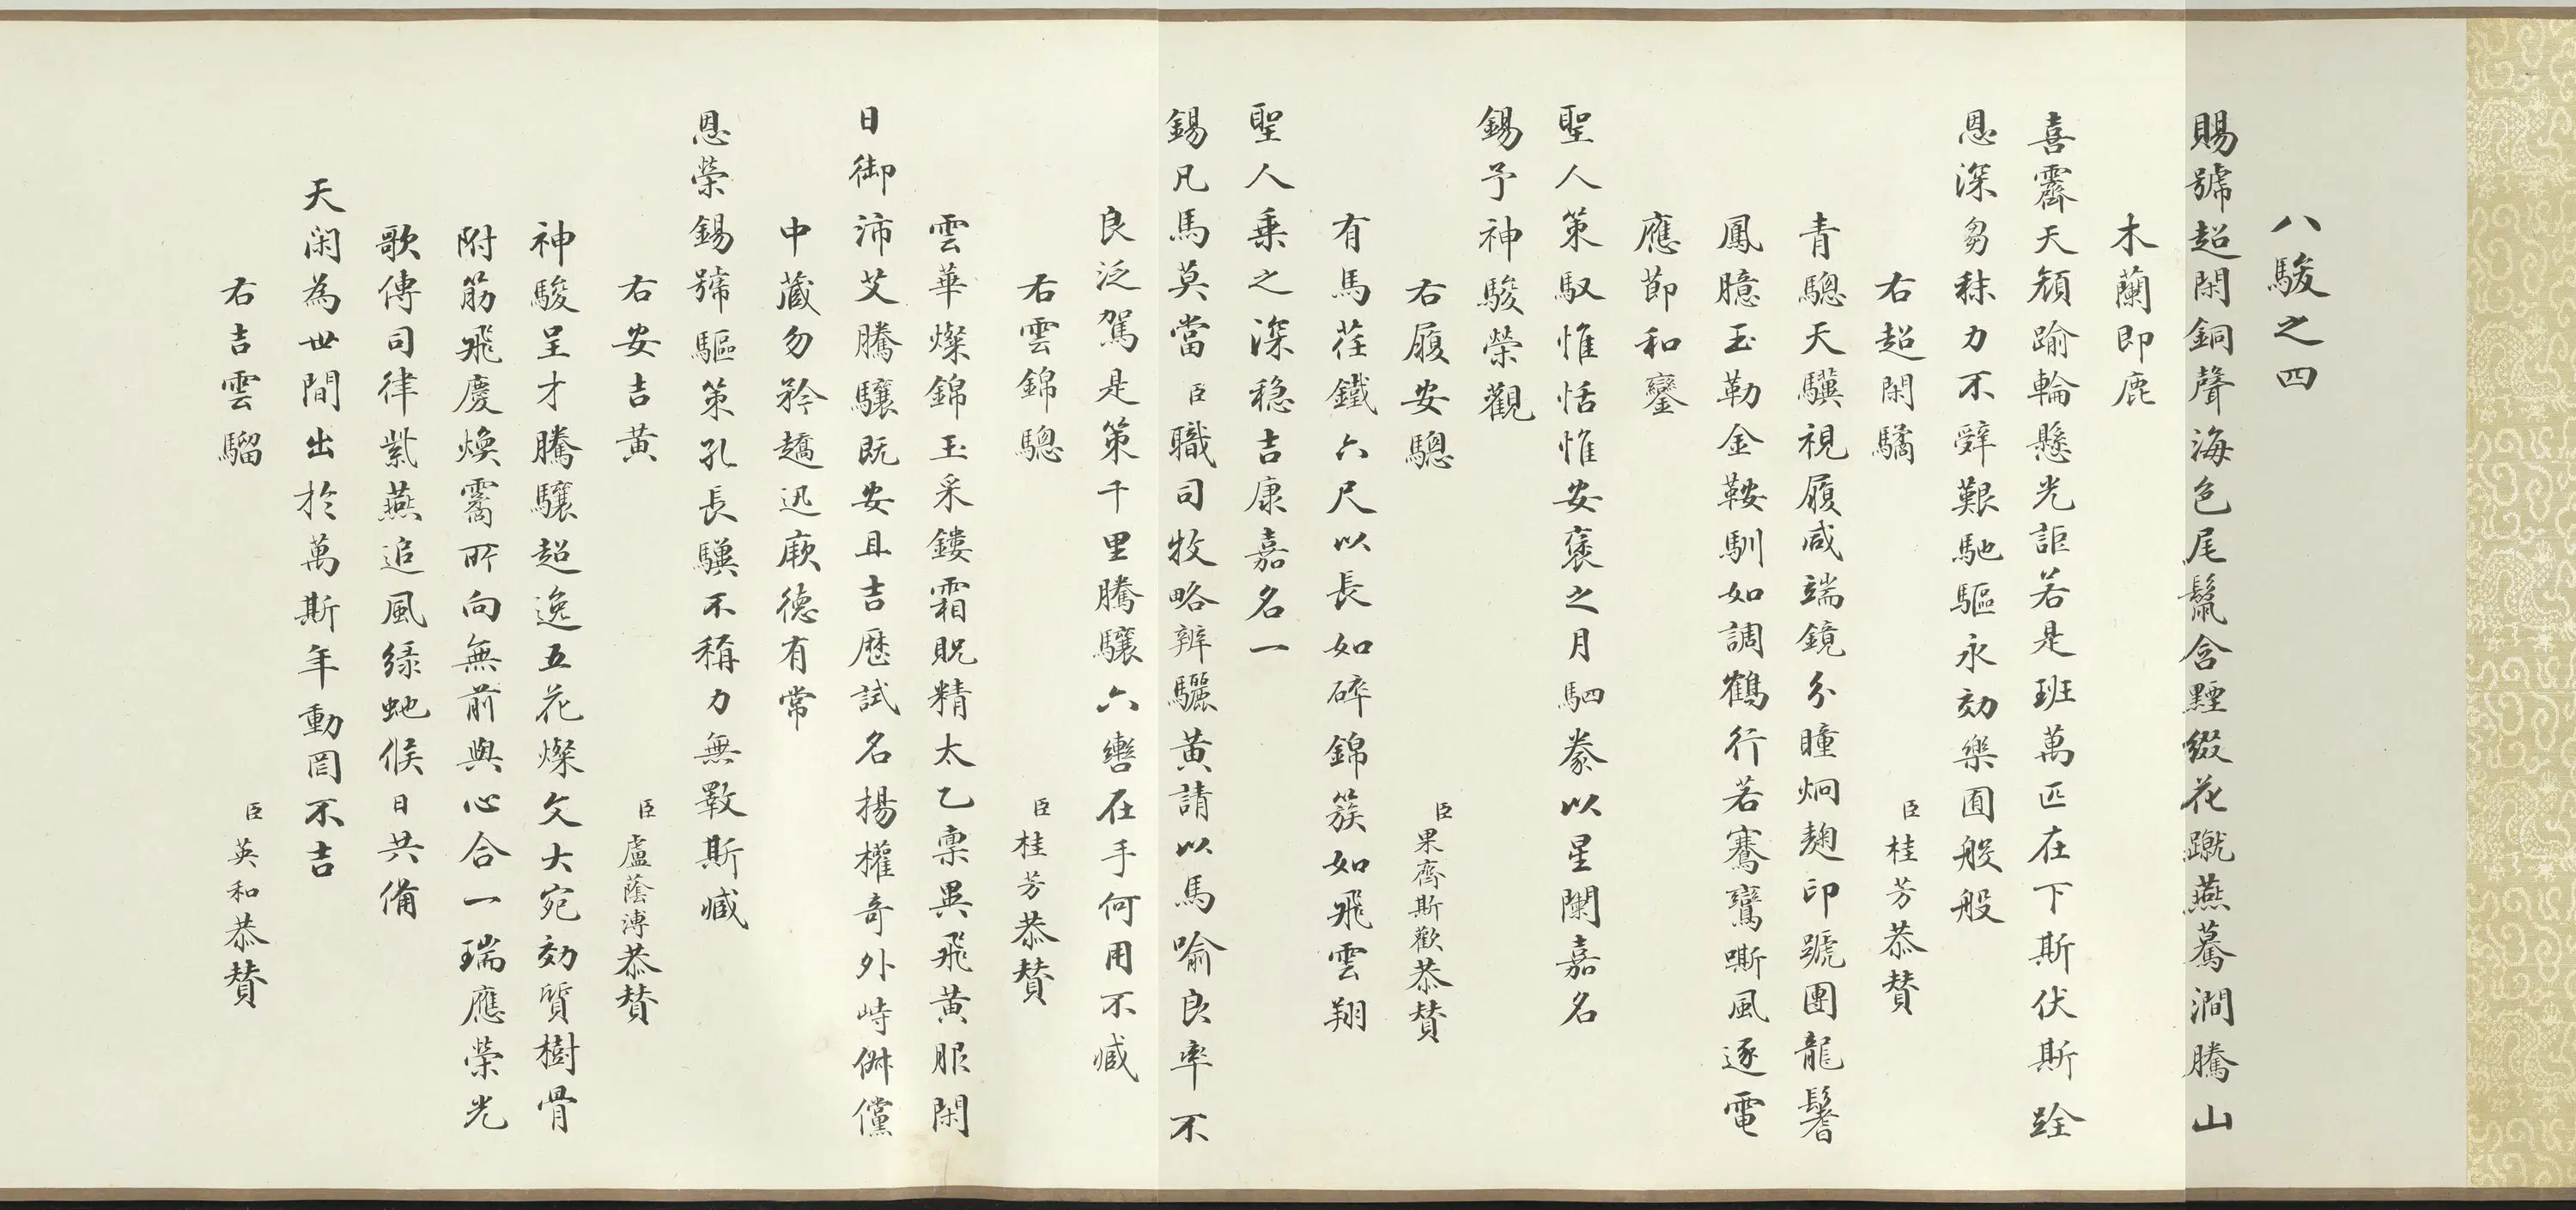 八駿之四
賜號超閑銅聲海色尾鬣含黫綴花蹴燕驀澗騰山
木蘭即鹿
喜霽天顏踰輪懸光詎若是班萬匹在下斯伏斯跧
恩深芻秣力不辤艱馳驅永効樂囿般般
右超閑驕
臣桂芳恭贊
青驄天驥視履咸端鏡分瞳炯麹印號團龍鬐
鳳臆玉勒金鞍馴如調鶴行若騫鸞嘶風逐電
應節和鑾
聖人策馭惟恬惟安褒之月駟豢以星闌嘉名
錫予神駿榮觀
右履安驄
臣果齊斯歡恭贊
有馬茬鐵六尺以長如碎錦簇如飛雲翔
聖人乗之深穏吉康嘉名一
錫凡馬莫當臣職司牧略辨驪黃請以馬喻良率不
良泛駕是策千里騰驤六轡在手何用不臧
右雲錦驄
臣桂芳恭贊
雲華燦錦玉采鏤霜貺精太乙稟異飛黃服閑
日御沛艾騰驤既安且吉歷試名揚權奇外峙俶儻
中蔵勿矜趫迅厥德有常
恩榮錫號驅策孔長驥不稱力無斁斯臧
右安吉黃
臣盧蔭溥恭贊
神駿呈才騰驤超逸五花燦文大宛効質樹骨
附筋飛慶煥霱所向無前與心合一瑞應榮光
歌傳司律紫燕追風緑虵候日共備
天閑為世間出於萬斯年動罔不吉
右吉雲騮
臣英和恭贊